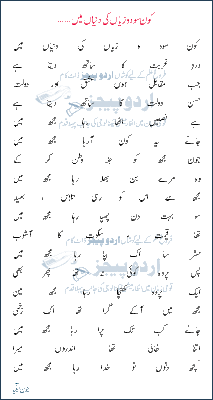 کون سود و زیاں کی دنیاں میں ......
کون سود و زیاں کی دنیاں میں
درد غربت کا ساتھ دیتا ہے
جب مقابل ہوں عشق اور دولت
حسن دولت کا ساتھ دیتا ہے
ہے فصیلیں اٹھا رہا مجھ میں
جانے یہ کون آ رہا مجھ میں
جون مجھ کو جلا وطن کر کے
وہ مرے بن بھلا رہا مجھ میں
مجھ سے اس کو رہی تلاش امید
سو بہت دن چھپا رہا مجھ میں
تھا قیامت سکوت کا آشوب
حشر سا اک بپا رہا مجھ میں
پس پردہ کوئی نہ تھا پھر بھی
ایک پردہ کھنچا رہا مجھ میں
مجھ میں آ کے گرا تھا اک زخمی
جانے کب تک پڑا رہا مجھ میں
اتنا خالی تھا اندروں میرا
کچھ دنوں تو خدا رہا مجھ میں
جون ایلیا
اردو پیجز
اردو پیجز